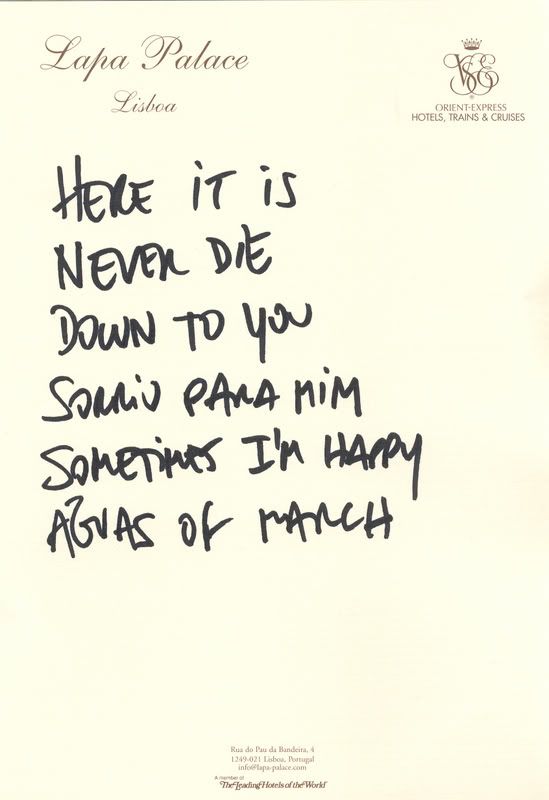 Lapa Palace
Lisboa
VSOE
ORIENT-EXPRESS
HOTELS, TRAINS & CRUISES
HERE IT IS
NEVER DIE
DOWN TO YOU
SORRIU PARA MIM
SOMETIMES I'M HAPPY
AGUAS OF MARCH
Rua do Pau da Bandeira, 4
1249-021 Lisboa, Portugal
info@lapa-palace.com
A member of
The Leading Hotels of the World